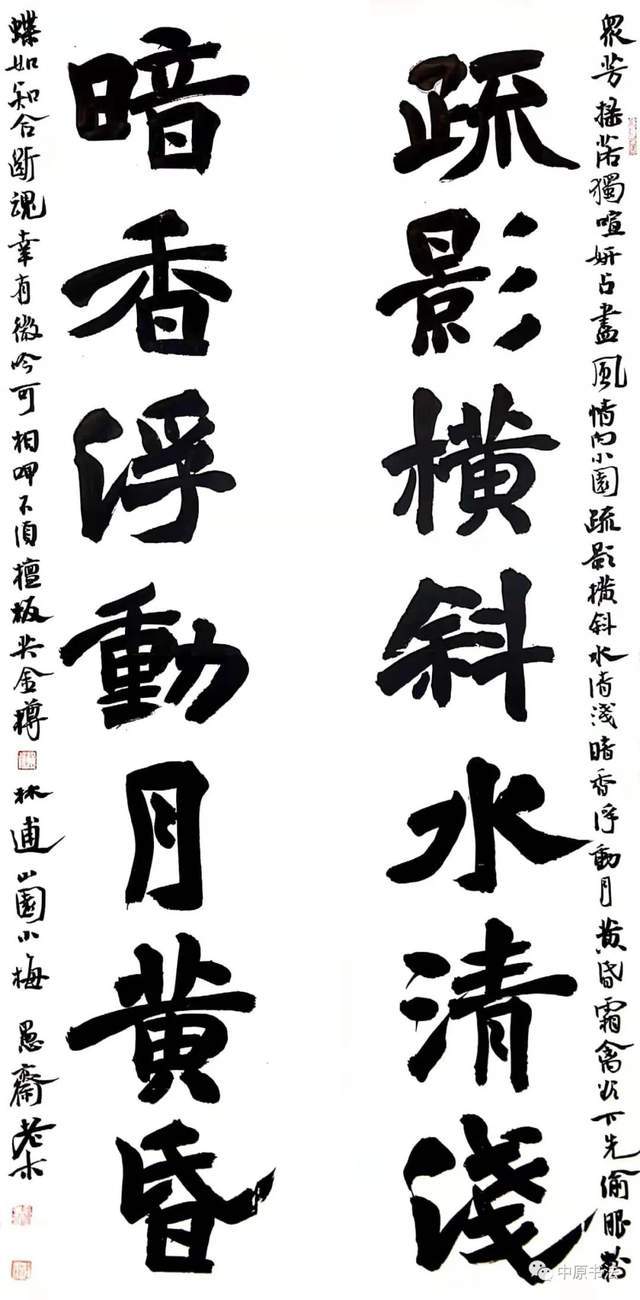 衆芳摇落獨喧妍占盡風情向小園疏影横斜水清淺暗香浮動月黄昏霜禽欲下先偷眼粉
疏影横斜水清淺
暗香浮動月黄昏
蝶如知合斷魂幸有微吟可相呷不須檀板共金樽 林逋山園小梅 愚齋
中原书法